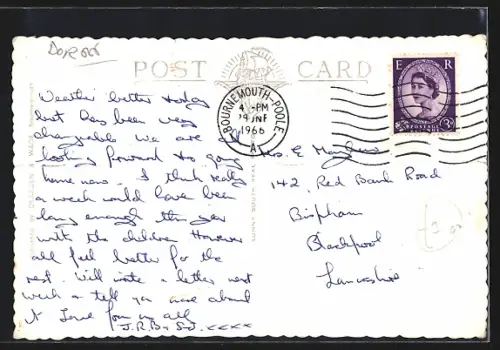 Dorset
POST CARD
E R
POSTAGE
3D
BOURNEMOUTH-POOLE
PM
JNE
1966
A
Weather better today
but has been very
changeable we are
looking forward to going
home now. I think really
a week would have been
long enough this year
with the children However
all feel better for the
rest. Will write a letter next
week & tell you more about
it Love from us all
J.R.B. xxxx
Mrs. E
142, Red Bank Road
Bispham
Blackpool
Lancashire